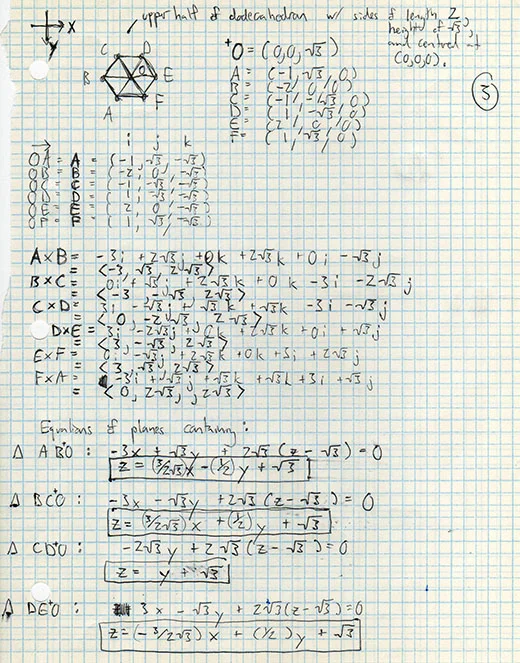 upper half of dodecahedron w/ sides of length 2,
height of √3,
and centred at
(0,0,0).
X
C D
B O E
A F
⁺O = (0,0,√3)
3
A = (-1, √3, 0)
B = (-2, 0, 0)
C = (-1, -√3, 0)
D = (1, -√3, 0)
E = (2, 0, 0)
F = (1, √3, 0)
i j k
OA = A = (-1, √3, -√3)
OB = B = (-2, 0, -√3)
OC = C = (-1, -√3, -√3)
OD = D = (1, -√3, -√3)
OE = E = (2, 0, -√3)
OF = F = (1, √3, -√3)
A×B = -3i + 2√3j + 0k + 2√3k + 0i - √3j
= <-3, √3, 2√3>
B×C = 0i + √3j + 2√3k + 0k - 3i - 2√3j
= <-3, -√3, 2√3>
C×D = 3i - √3j + √3k + √3k - 3i - √3j
= <0, -2√3, 2√3>
D×E = 3i - 2√3j + 0k + 2√3k + 0i + √3j
= <3, -√3, 2√3>
E×F = 0i - √3j + 2√3k + 0k + 3i + 2√3j
= <3, √3, 2√3>
F×A = -3i + √3j + √3k + √3k + 3i + √3j
= <0, 2√3, 2√3>
Equations of planes containing:
Δ AB⁺O : -3x + √3y + 2√3(z - √3) = 0
z = (3/2√3)x - (1/2)y + √3
Δ BC⁺O : -3x - √3y + 2√3(z - √3) = 0
z = (3/2√3)x + (1/2)y + √3
Δ CD⁺O : -2√3y + 2√3(z - √3) = 0
z = y + √3
Δ DE⁺O : 3x - √3y + 2√3(z - √3) = 0
z = (-3/2√3)x + (1/2)y + √3